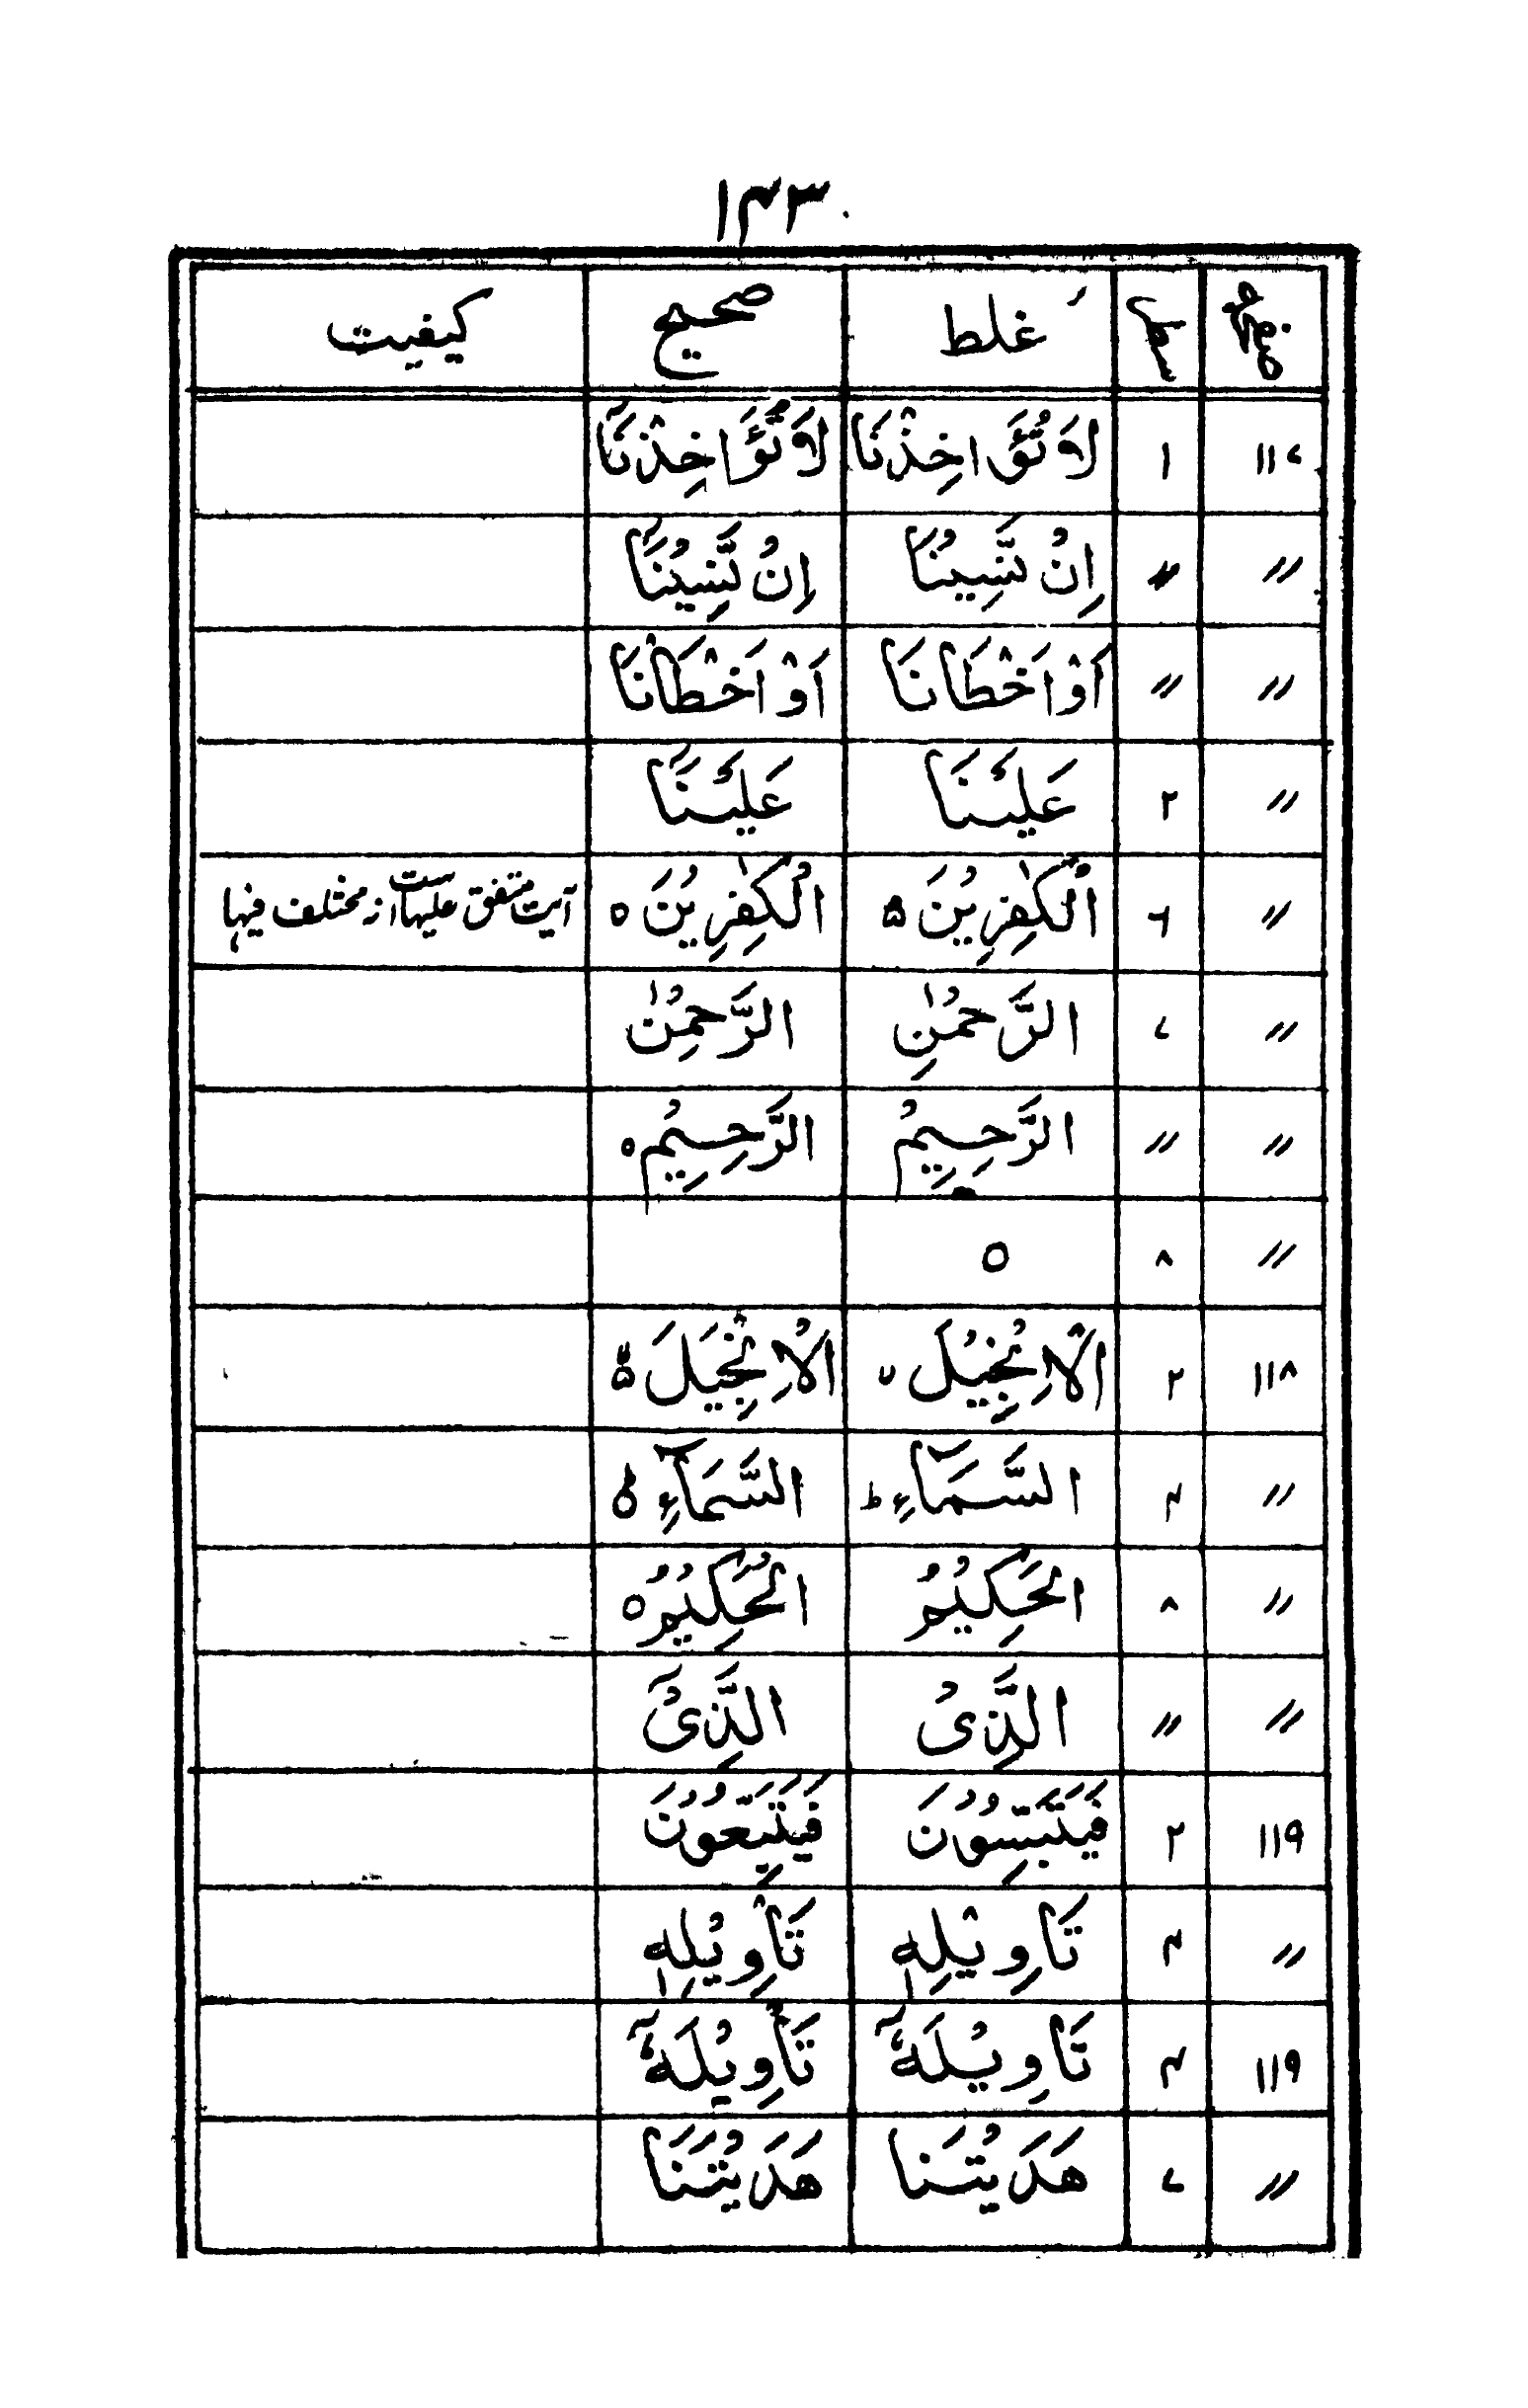 ۱۴۳
صفحہ سطر غلط صحیح کیفیت
۱۱۷ ۱ لَا تُؤَاخِذْنَا لَا تُؤَاخِذْنَآ
〃 〃 اِنْ نَّسِيْنَا اِنْ نَّسِيْنَآ
〃 〃 اَوْ اَخْطَانَا اَوْ اَخْطَاْنَا
〃 ۲ عَلَيْنَا عَلَيْنَآ
〃 ۶ الْكٰفِرِيْنَ ۵ الْكٰفِرِيْنَ ۝ آیت متفق علیہاست نہ مختلف فیہا
〃 ۷ الرَّحْمٰنِ الرَّحْمٰنِ
〃 〃 الرَّحِيْمُ الرَّحِيْمِ ۝
〃 ۸ ۝
۱۱۸ ۲ الْاِنْجِيْلَ الْاِنْجِيْلَ ۝
〃 ۴ السَّمَآءِ ط السَّمَآءِ ۝ط
〃 ۸ الْحَكِيْمُ الْحَكِيْمُ ۝
〃 〃 الَّذِىْ الَّذِىْٓ
۱۱۹ ۲ فَيَتَّبِسُوْنَ فَيَتَّبِعُوْنَ
〃 ۴ تَاوِيْلِهٖ تَاْوِيْلِهٖ
۱۱۹ ۴ تَاوِيْلَهٗٓ تَاْوِيْلَهٗٓ
〃 ۷ هَدَيْتَنَا هَدَيْتَنَا